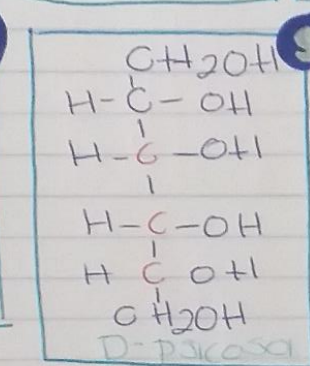 CH2OH
H-C-OH
H-C-OH
H-C-OH
H C OH
CH2OH
D-psicosa